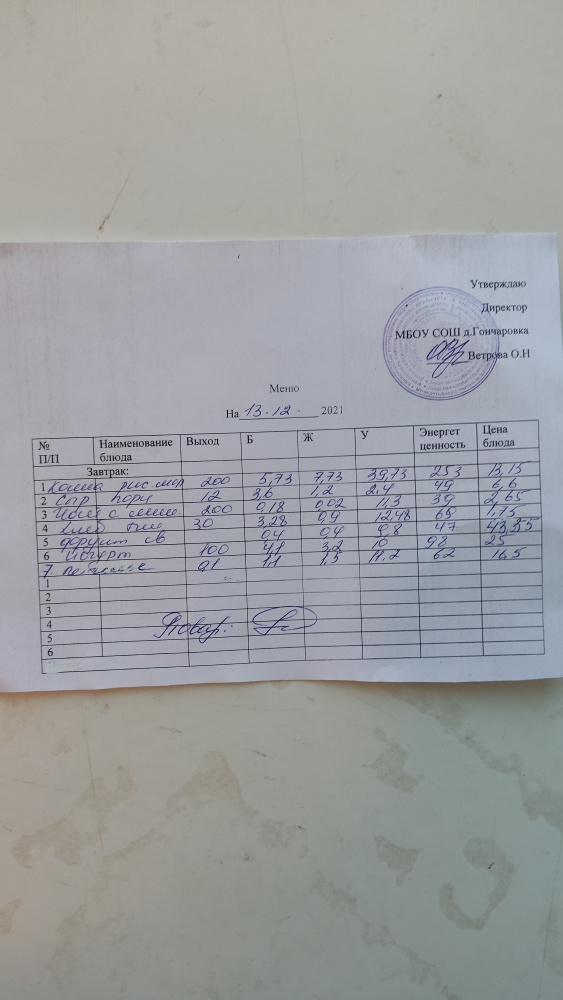 Утверждаю
Директор
МБОУ СОШ д.Гончаровка
Ветрова О.Н
Меню
На 13.12. 2021
№ П/П Наименование блюда Выход Б Ж У Энергет ценность Цена блюда
Завтрак:
1 Каша рис. мол 200 5,73 7,73 39,73 253 13,15
2 Сыр порц 12 3,6 1,2 2,4 49 6,6
3 Чай с 200 0,18 0,02 11,3 39 2,65
4 Хлеб 30 3,28 0,9 12,48 65 1,75
5 фрукт св 0,4 0,4 9,8 47
6 Йогурт 100 3,2 10 98 25
7 0,1 1,1 1,3 11.2 62 16.5
1
2
3
4
5
6
Повар: